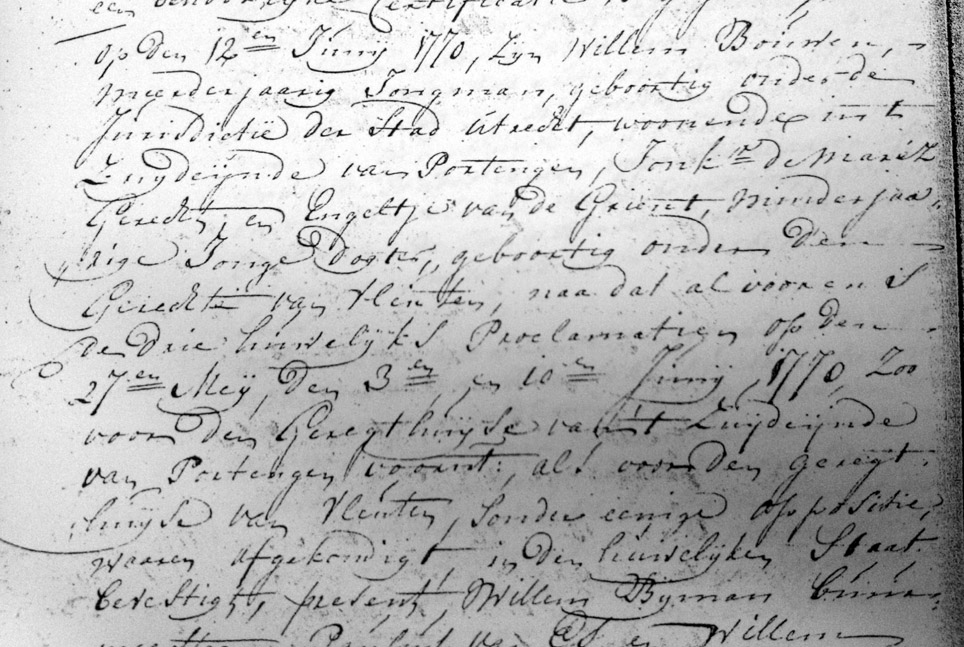 een behoorlijke Certificatie
op den 12en Junij 1770, Zyn Willem Bouwen,
meerderjaarig Jongman, geboortig onder de
Jurisdictie der Stad Utrecht, woonende in't
Zuydeijnde van Portengen, Jonkr de Maréz
Gerecht, en Engeltje van de Grient, minderjaa,
rige Jonge Dogter, geboortig onder den
Gerechte van Vleuten, naa dat alvooren S
de drie huwelyks Proclamatien op den
27en Meÿ, den 3en, en 10en Junij 1770, Zoo
voor den Geregthuijse van't Zuydeijnde
van Portengen voornt:, als voor den geregt,
huijse van Vleuten, sonder eenige oppositie,
waaren afgekondigt, in den huwelyken Staat
bevestigt, present, Willem Byman buur,
Paulus van Es en Willem